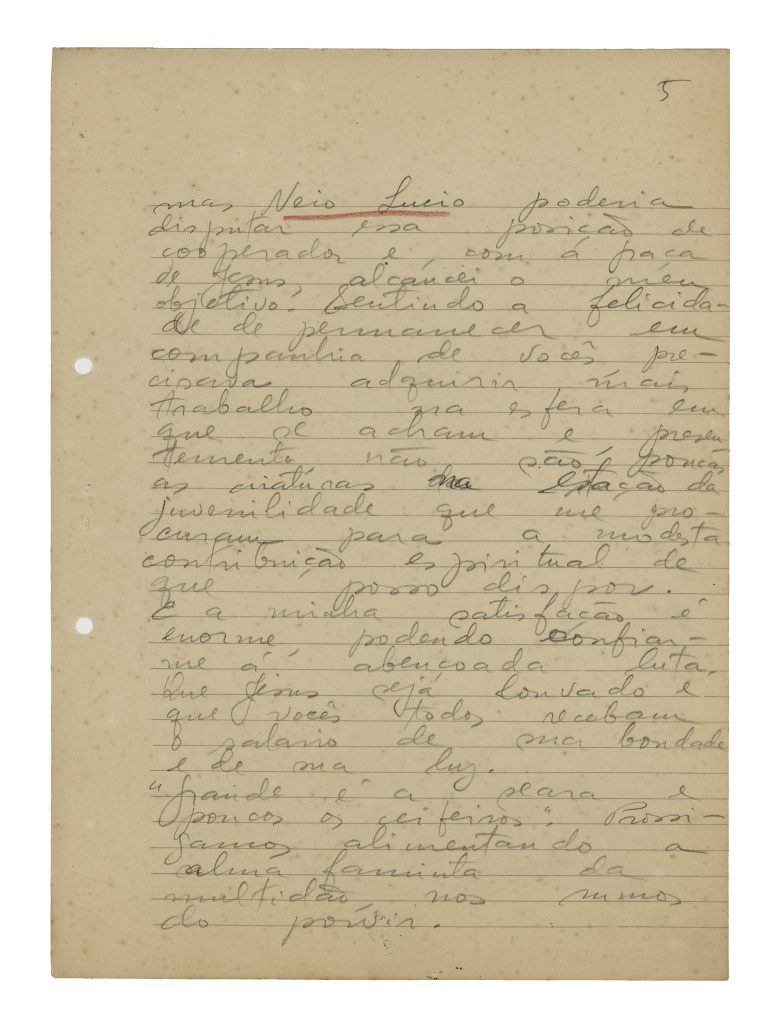 5
mas Neio Lucio poderia
disputar essa posição de
cooperador e, com á graça
de Jesus, alcancei o meu
objetivo. Sentindo a felicida-
de de permanecer em
companhia de vocês pre-
cisava adquirir mais
trabalho na esfera em
que se acham e presen
temente não são poucas
as criaturas na estação da
juvenilidade que me pro-
curam para a modesta
contribuição espiritual de
que posso dispor.
E a minha satisfação é
enorme, podendo confiar-
me á abençoada luta.
Que Jesus sejá louvado e
que vocês todos recebam
o salario de sua bondade
e de sua luz.
"Grande é a seara e
poucos os ceifeiros". Prossi-
gamos alimentando a
alma faminta da
multidão nos rumos
do porvir.